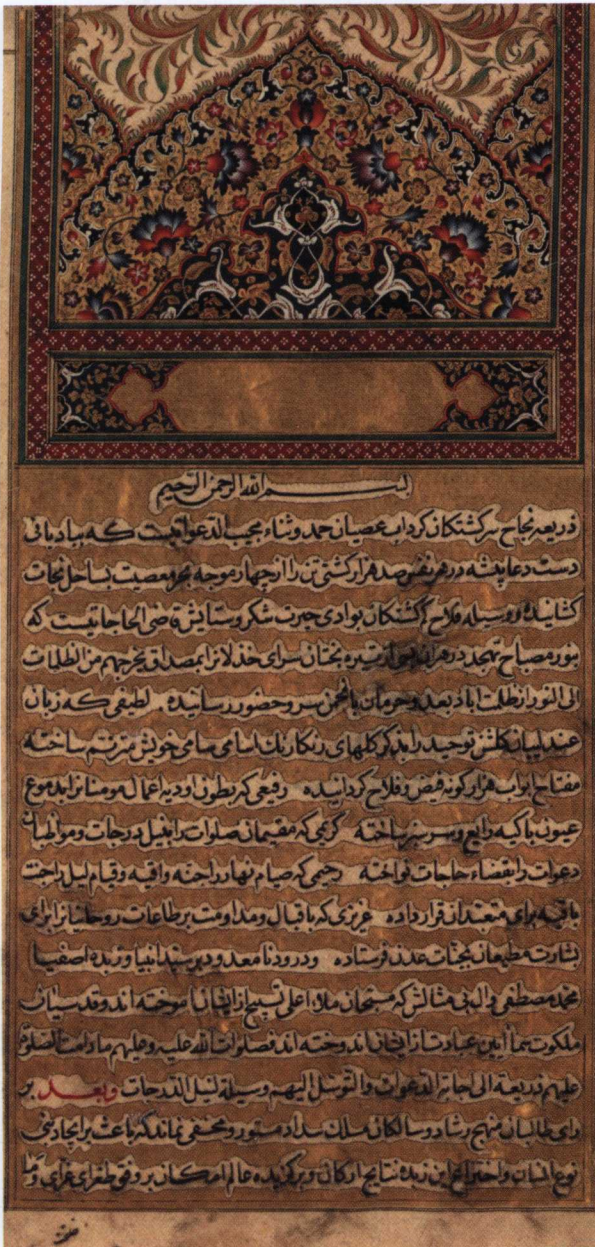 بسم الله الرحمن الرحیم
ذریعه نجاح سرکشتکان کرداب عصیان حمد وثناء مجیب الدعواتیست که ببادبانی
دست دعا پیشه در هر نفس صد هزار کشتی تن را از چهار موجه بحر معصیت بساحل نجات
کشانیده و وسیله فلاح کم کشتکان بوادی حیرت شکر وستایش قاضی الحاجاتیست که
بنور مصباح تهجد در هر تیره بختان سرای خذلانرا بمصداق یخرجهم من الظلمات
الی النور از ظلمت اباد بعد وحرمان بانجمن سرور وحضور رسانیده لطیفی که زبان
عندلیبان کلشن توحید را بذکر کلهای رنکارنک اسامی سامی خویش مترنم ساخته
مفتاح ابواب هزار کونه فیض وفلاح کردانیده رفیعی که بطون اودیه اعمال مومنانرا بدموع
عیون باکیه رایع وسرسبز ساخته کریمی که مقیمان صلوات را بنیل درجات ومواظبان
دعوات را بقضاء حاجات نواخته رحیمی که صیام نهار را جنه واقیه وقیام لیل را جنت
باقیه برای متعبدان قرار داده عزیزی که باقبال ومداومت بر طاعات روحانیانرا برای
بشارت مطیعان بجنات عدن فرستاده ودرود نامعدود بر سید انبیا وزبده اصفیا
محمد مصطفی وال بی مثالش که مسبحان ملاء اعلی تسبیح از ایشان اموخته اند وقدسیان
ملکوت سما ایین عبادت از ایشان اندوخته اند فصلوات الله علیه وعلیهم مادامت الصلوة
علیهم ذریعة الی اجابة الدعوات والتوسل الیهم وسیلة لنیل الدرجات وبعد بر
رای طالبان منهج رشاد وسالکان مسلک سداد مستور ومخفی نماند که باعث بر ایجاد بنی
نوع انسان واختراع این زبده نتایج ارکان وبرکزیده عالم امکان بر وفق طغرای غرای وما